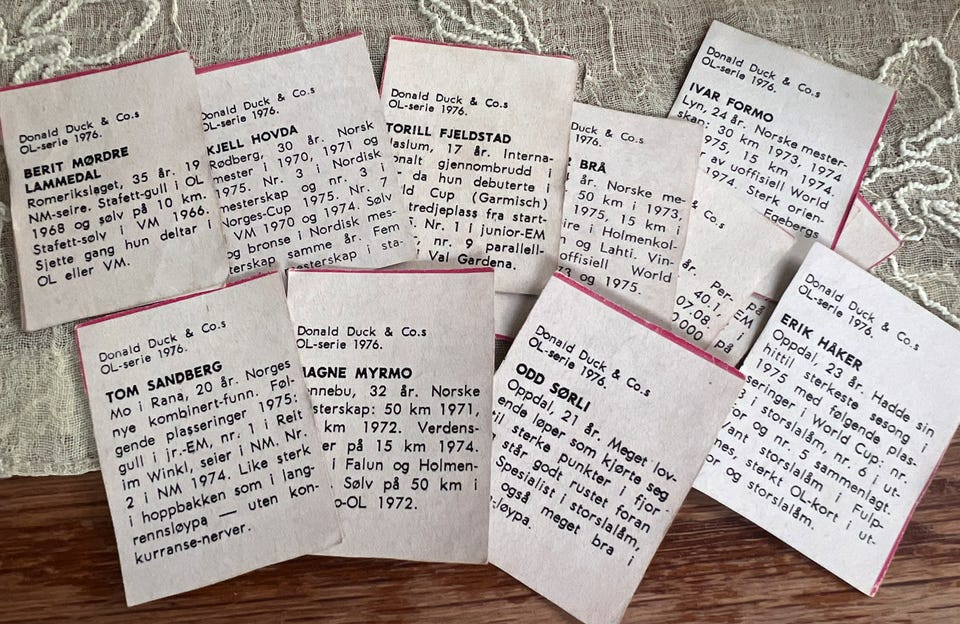 Donald Duck & Co.s
OL-serie 1976.
BERIT MØRDRE
LAMMEDAL
Romerikslaget, 35 år. 19
NM-seire. Stafett-gull i OL
1968 og sølv på 10 km.
Stafett-sølv i VM 1966.
Sjette gang hun deltar i
OL eller VM.
Donald Duck & Co.s
OL-serie 1976.
KJELL HOVDA
Rødberg, 30 år. Norsk
mester i 1970, 1971 og
1975. Nr. 3 i Nordisk
mesterskap og nr. 3 i
Norges-Cup 1975. Nr. 7
VM 1970 og 1974. Sølv
og bronse i Nordisk mes-
terskap samme år. Fem
mesterskap i sta-
Donald Duck & Co.s
OL-serie 1976.
TORILL FJELDSTAD
Haslum, 17 år. Interna-
onalt gjennombrudd i
da hun debuterte i
Cup (Garmisch)
tredjeplass fra start-
Nr. 1 i junior-EM
nr. 9 parallell-
Val Gardena.
& Co.s
1976.
BRÅ
år. Norske me-
50 km i 1973,
1975, 15 km i
ire i Holmenkol-
n og Lahti. Vin-
offisiell World
73 og 1975.
Co.s
år. Per-
40.1, EM
07.08 i
000 på
på
Donald Duck & Co.s
OL-serie 1976.
IVAR FORMO
Lyn, 24 år. Norske mester-
skap: 30 km 1973, 1974
1975, 15 km 1974.
av uoffisiell World
1974. Sterk orien-
Egebergs
Donald Duck & Co.s
OL-serie 1976.
TOM SANDBERG
Mo i Rana, 20 år. Norges
nye kombinert-funn. Føl-
gende plasseringer 1975:
gull i jr.-EM, nr. 1 i Reit
im Winkl, seier i NM. Nr.
2 i NM 1974. Like sterk
i hoppbakken som i lang-
rennsløypa — uten kon-
kurranse-nerver.
Donald Duck & Co.s
OL-serie 1976.
MAGNE MYRMO
ennebu, 32 år. Norske
sterskap: 50 km 1971,
km 1972. Verdens-
er på 15 km 1974.
i Falun og Holmen-
Sølv på 50 km i
o-OL 1972.
Donald Duck & Co.s
OL-serie 1976.
ODD SØRLI
Oppdal, 21 år. Meget lov-
ende løper som kjørte seg
til sterke punkter i fjor.
står godt rustet foran
Spesialist i storslalåm,
også meget bra i
-løypa.
Donald Duck & Co.s
OL-serie 1976.
ERIK HÅKER
Oppdal, 23 år. Hadde sin
hittil sterkeste sesong i
1975 med følgende plas-
seringer i World Cup: nr.
3 i storslalåm, nr. 6 i ut-
for og nr. 5 sammenlagt.
Vant storslalåm i Fulp-
mes, sterkt OL-kort i ut-
for og storslalåm.